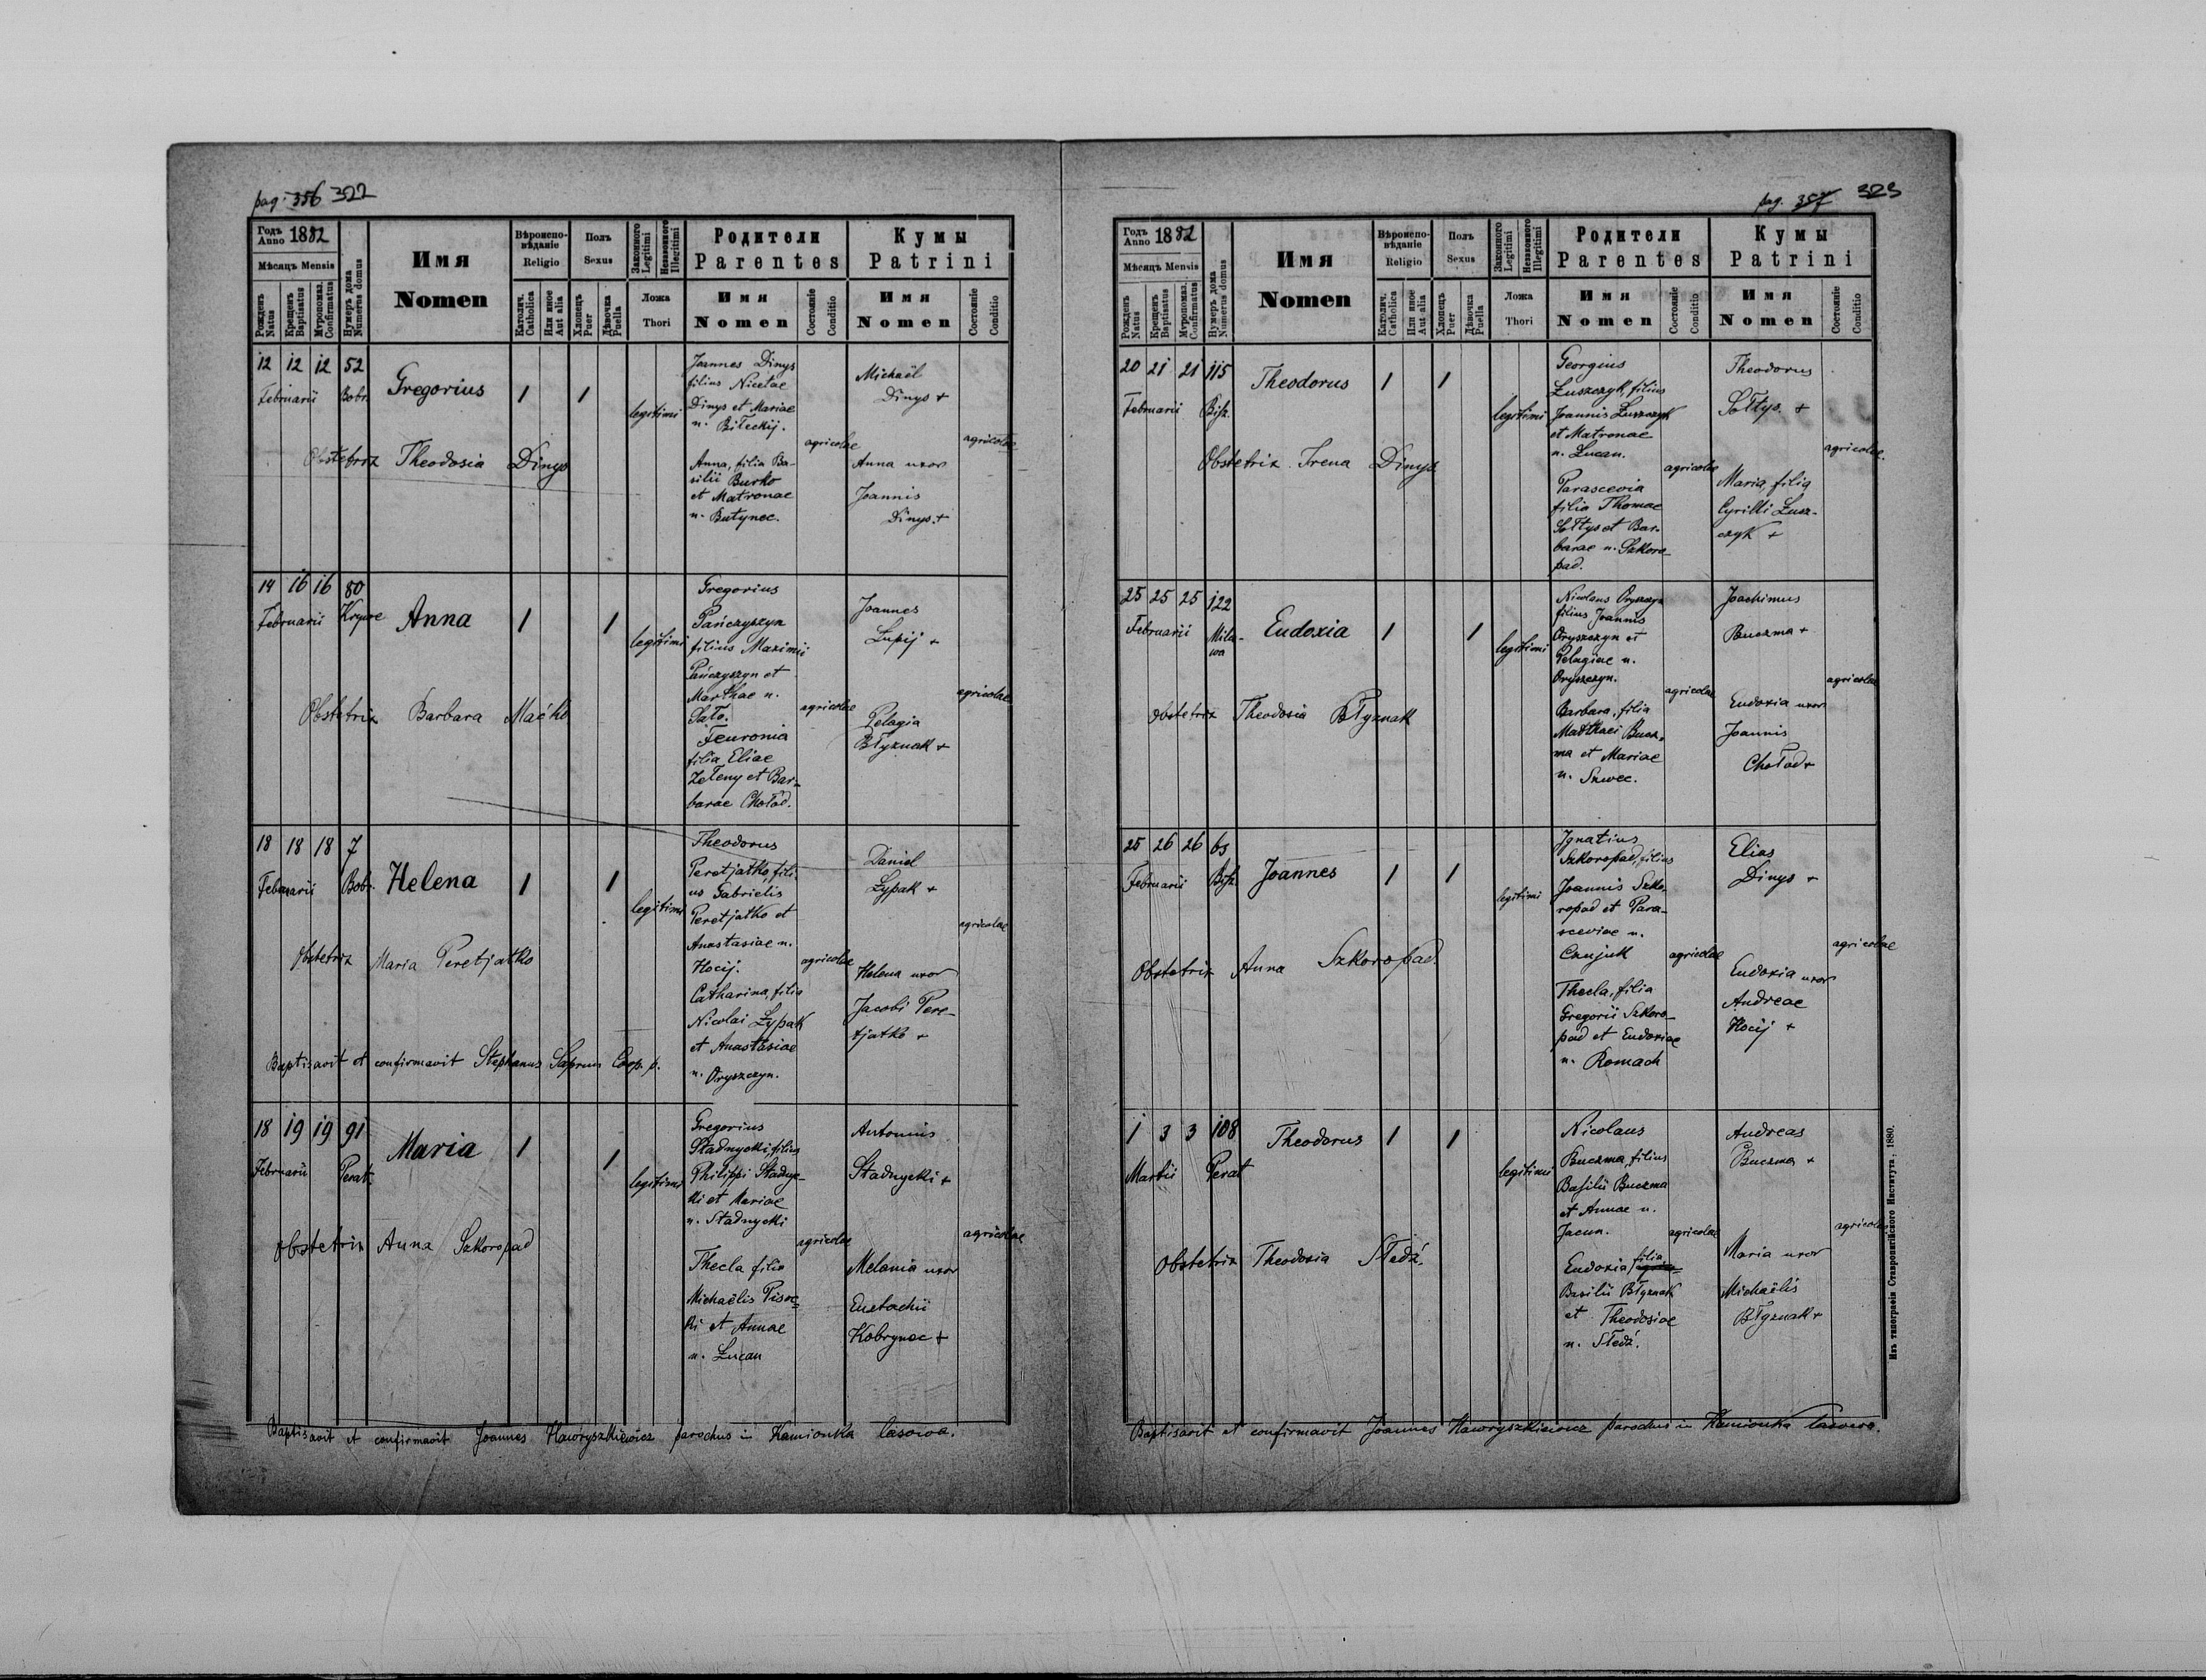 pag. 356 322
Годъ Anno 1882
Мѣсяцъ Mensis
Рожденъ Natus
Крещенъ Baptisatus
Мѵропомаз. Confirmatus
Нумеръ дома Numerus domus
Имя
Nomen
Вѣроисповѣданіе
Religio
Католич. Catholica
Или иное Aut alia
Полъ
Sexus
Хлопецъ Puer
Дѣвочка Puella
Законного Legitimi
Незаконного Illegitimi
Ложа
Thori
Родители
Parentes
Имя
Nomen
Состояніе Conditio
Кумы
Patrini
Имя
Nomen
Состояніе Conditio
12 12 12 52
Februarii Bobr.
Gregorius
1 1
legitimi
Joannes Dinys
filius Nicetae
Dinys et Mariae
n. Biłeckij.
Anna, filia Ba-
silii Burko
et Matronae
n. Butynec.
agricolae
Michaël
Dinys +
Anna uxor
Joannis
Dinys. +
agricolae
Obstetrix Theodosia Dinys
14 16 16 80
Februarii Krywe
Anna
1 1
legitimi
Gregorius
Pańczyszyn
filius Maximii
Pańczyszyn et
Marthae n.
Sało.
Feuronia
filia Eliae
Zełeny et Bar-
barae Chołod.
agricolae
Joannes
Łupij +
Pelagia
Błyznak +
agricolae
Obstetrix Barbara Maćko
18 18 18 7
Februarii Bobr.
Helena
1 1
legitimi
Theodorus
Peretjatko, fili-
us Gabrielis
Peretjatko et
Anastasiae n.
Hocij.
Catharina, filia
Nicolai Łypak
et Anastasiae
n. Oryszczyn.
agricolae
Daniel
Łypak +
Helena uxor
Jacobi Pere-
tjatko +
agricolae
Obstetrix Maria Peretjatko
Baptisavit et confirmavit Stephanus Saprun Coop. p.
18 19 19 91
Februarii Perat.
Maria
1 1
legitimi
Gregorius
Stadnycki, filius
Philippi Stadny-
cki et Mariae
n. Stadnycki
Thecla filia
Michaëlis Pisoc-
ki et Annae
n. Łucan
agricolae
Antonius
Stadnycki +
Melania uxor
Eustachii
Kobrynec +
agricolae
Obstetrix Anna Szkoropad
Baptisavit et confirmavit Joannes Hawryszkiewicz parochus in Kamionka lasowa.
pag. 357 323
Годъ Anno 1882
Мѣсяцъ Mensis
Рожденъ Natus
Крещенъ Baptisatus
Мѵропомаз. Confirmatus
Нумеръ дома Numerus domus
Имя
Nomen
Вѣроисповѣданіе
Religio
Католич. Catholica
Или иное Aut alia
Полъ
Sexus
Хлопецъ Puer
Дѣвочка Puella
Законного Legitimi
Незаконного Illegitimi
Ложа
Thori
Родители
Parentes
Имя
Nomen
Состояніе Conditio
Кумы
Patrini
Имя
Nomen
Состояніе Conditio
20 21 21 115
Februarii
Theodorus
1 1
legitimi
Georgius
Łuszczyk, filius
Joannis Łuszczyk
et Matronae
n. Łucan.
Parascevia
filia Thomae
Sołtys et Bar-
barae n. Szkoro-
pad.
agricolae
Theodorus
Sołtys. +
Maria, filia
Cyrilli Łusz-
czyk +
agricolae.
Obstetrix Irena Dinys
25 25 25 122
Februarii
Eudoxia
1 1
legitimi
Nicolaus Oryszczyn
filius Joannis
Oryszczyn et
Pelagiae n.
Oryszczyn.
Barbara, filia
Matthaei Bucz-
ma et Mariae
n. Szwec.
agricolae
Joachimus
Buczma +
Eudoxia uxor
Joannis
Chołod +
agricolae
Obstetrix Theodosia Błyznak
25 26 26 65
Februarii
Joannes
1 1
legitimi
Ignatius
Szkoropad, filius
Joannis Szko-
ropad et Para-
sceviae n.
Czujuk
Thecla, filia
Gregorii Szkoro-
pad et Eudoxiae
n. Romach
agricolae
Elias
Dinys +
Eudoxia uxor
Andreae
Hocij +
agricolae
Obstetrix Anna Szkoropad.
1 3 3 108
Martii Perat
Theodorus
1 1
legitimi
Nicolaus
Buczma, filius
Basilii Buczma
et Annae n.
Jacun.
Eudoxia, filia
Basilii Błyznak
et Theodosiae
n. Sledź.
agricolae
Andreas
Buczma +
Maria uxor
Michaëlis
Błyznak +
agricolae
Obstetrix Theodosia Sledź.
Baptisavit et confirmavit Joannes Hawryszkiewicz parochus in Kamionka lasowa.
Изъ типографіи Ставропигійского Института, 1880.